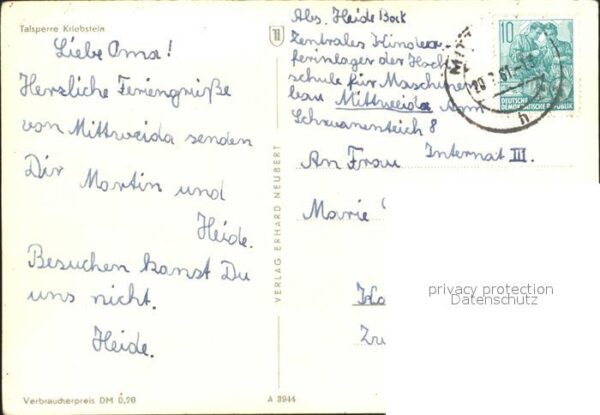 Talsperre Kriebstein
Liebe Oma!
Herzliche Feriengrüße
von Mittweida senden
Dir Martin und
Heide.
Besuchen kannst Du
uns nicht.
Heide.
Verbraucherpreis DM 0,20
VERLAG ERHARD NEUBERT
A 3944
Abs. Heide Bock
Zentrales Kinder
ferienlager der Hoch
schule für Maschinen
bau Mittweida Am
Schwanenteich 8
Internat III.
An Frau
Marie
10
DEUTSCHE
DEMOKRATISCHE REPUBLIK
MITT
h
privacy protection
Datenschutz